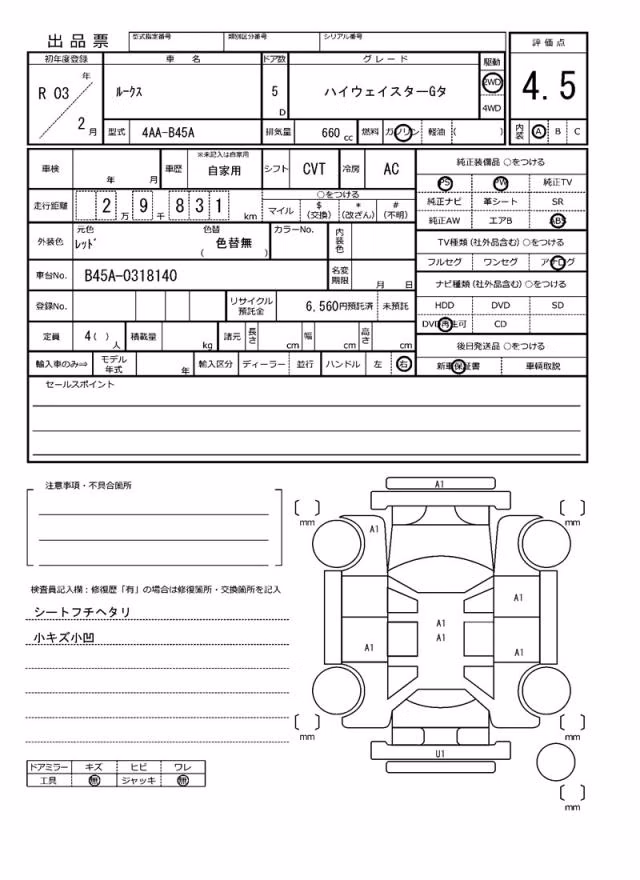 出品票
型式指定番号 類別区分番号 シリアル番号
初年度登録 車名 ドア数 グレード 駆動 評価点
R 03 年 2 月
ルークス 5 D ハイウェイスターGタ 2WD 4WD 4.5
型式 4AA-B45A 排気量 660 cc 燃料 ガソリン 軽油 ( ) 内装 A B C
車検 年 月 車歴 ※未記入は自家用 自家用 シフト CVT 冷房 AC
純正装備品 ○をつける
PS PW 純正TV
走行距離 2 万 9 千 8 3 1 km
○をつける
マイル $(交換) *(改ざん) #(不明)
純正ナビ 革シート SR
純正AW エアB ABS
外装色 元色 レッド 色替 色替無 ( ) カラーNo. 内装色
TV種類(社外品含む) ○をつける
フルセグ ワンセグ アナログ
車台No. B45A-0318140 名変期限 月 日
ナビ種類(社外品含む) ○をつける
登録No. リサイクル預託金 6,560円預託済 未預託
HDD DVD SD
DVD再生可 CD
定員 4( )人 積載量 kg 諸元 長さ cm 幅 cm 高さ cm
後日発送品 ○をつける
輸入車のみ⇒ モデル年式 年 輸入区分 ディーラー 並行 ハンドル 左 右
新車保証書 車輌取説
セールスポイント
注意事項・不具合箇所
検査員記入欄:修復歴「有」の場合は修復箇所・交換箇所を記入
シートフチヘタリ
小キズ小凹
A1
mm mm
A1
A1
A1
A1
A1 A1
mm mm
U1
mm
ドアミラー キズ ヒビ ワレ
工具 無 ジャッキ 無